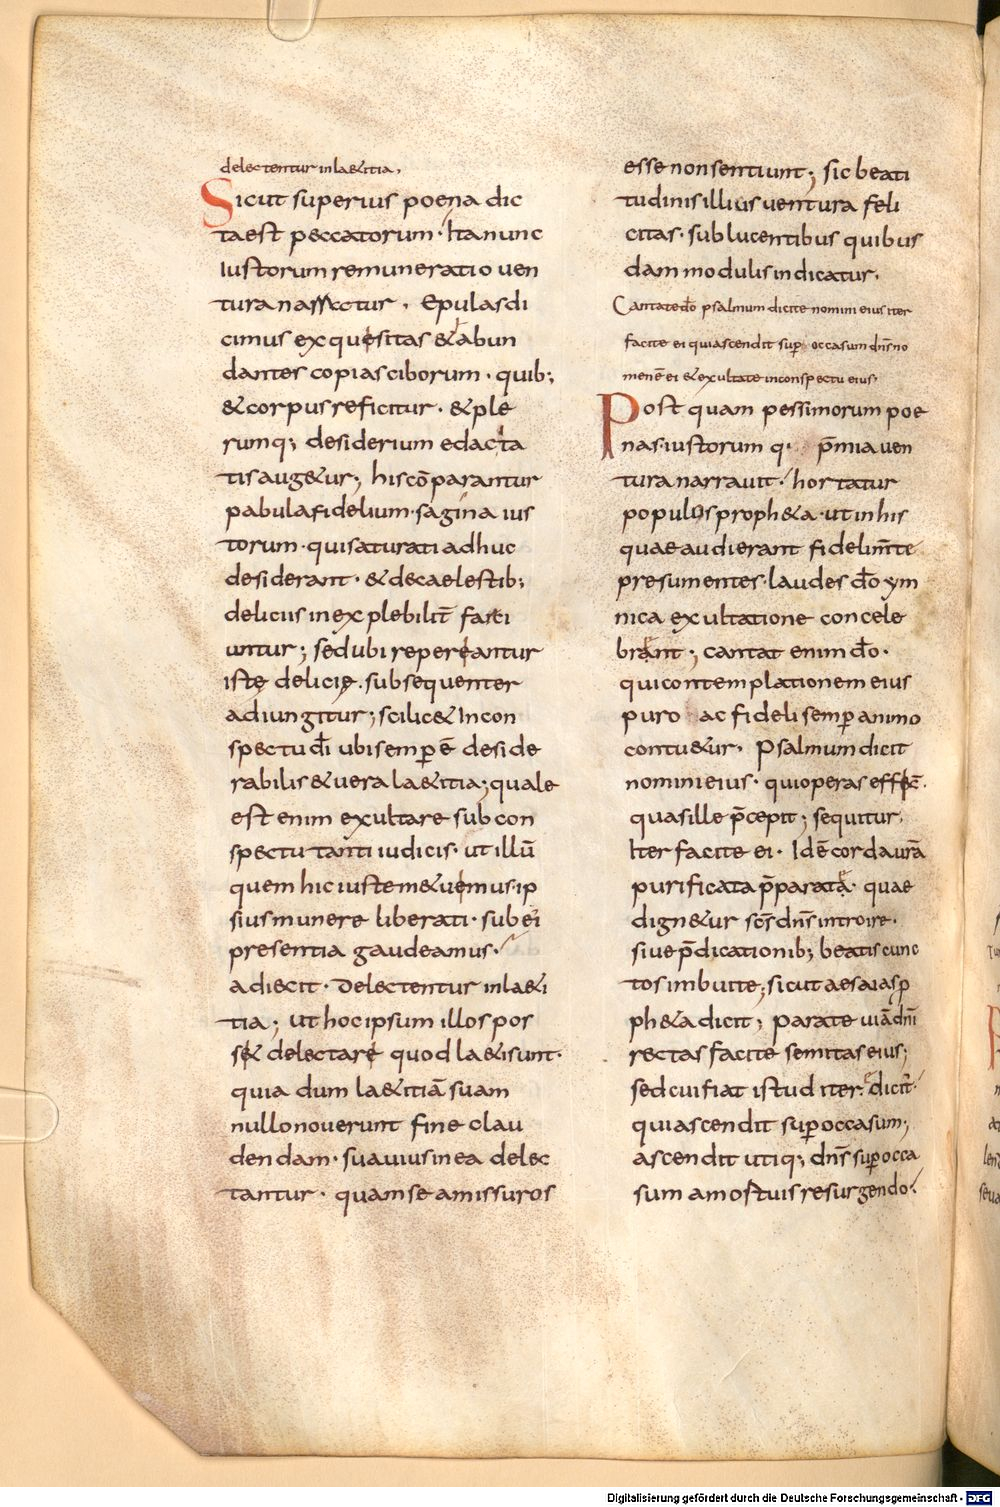 delectentur in la&itia,
Sicut superius poena dic
ta est peccatorum · Ita nunc
Iustorum remuneratio ven
tura narratur , Epulas di
cimus exquesitas & abun
dantes copias ciborum · quib;
& corpus reficitur · & ple
rumq; desiderium edacita
tis aug&ur; his cō parantur
pabula fidelium · sagina ius
torum · qui saturati adhuc
desiderant · & de caelestib;
deliciis inexplebilit̄ farci
untur ; sed ubi repereantur
istę delicię . subsequenter
adiungitur; scilic& In con
spectu dī ubi semp̄ ē deside
rabilis & vera la&itia; quale
est enim exultare sub con
spectu tanti iudicis · ut illū
quem hic iuste m&uemus · ip
sius munere liberati · sub ei
presentia gaudeamus ·
adiecit · Delectentur in la&i
tia ; ut hoc ipsum illos pos
s& delectare quod la&i sunt ·
quia dum la&itiā suam
nullo noverunt fine clau
dendam · suavius in ea delec
tantur · quam se amissuros
esse non sentiunt ; sic beati
tudinis illius ventura feli
citas · sublucentibus quibus
dam modulis indicatur ,
Cantate dō psalmum dicite nomini eius iter
facite ei qui ascendit sup̄ occasum dn̄s no
men ē ei & exultate in conspectu eius ,
Post quam pessimorum poe
nas · iustorum q; p̄mia ven
tura narravit · hortatur
populos proph&a · ut in his
quae audierant fidelim̄te
presumentes · laudes dō ym
nica exultatione concele
brant ; cantat enim dō ·
qui contemplationem eius
puro ac fideli semp̄ animo
contu&ur · Psalmum dicit
nomini eius · qui operas effec̄ ·
quas ille p̄cepit ; sequitur ,
Iter facite ei · Idē corda vr̄a
purificata p̄parata · quae
dign&ur sc̄s dn̄s introire ·
sive p̄dicationib; beatis cunc
tos imbuite; sicut aesaias p
ph&a dicit ; parate viā dn̄i
rectas facite semitas eius;
sed cui fiat istud iter · dicit ·
qui ascendit sup̄ occasum;
ascendit utiq; dn̄s sup̄ occa
sum a mostuis resurgendo ·
Digitalisierung gefördert durch die Deutsche Forschungsgemeinschaft - DFG